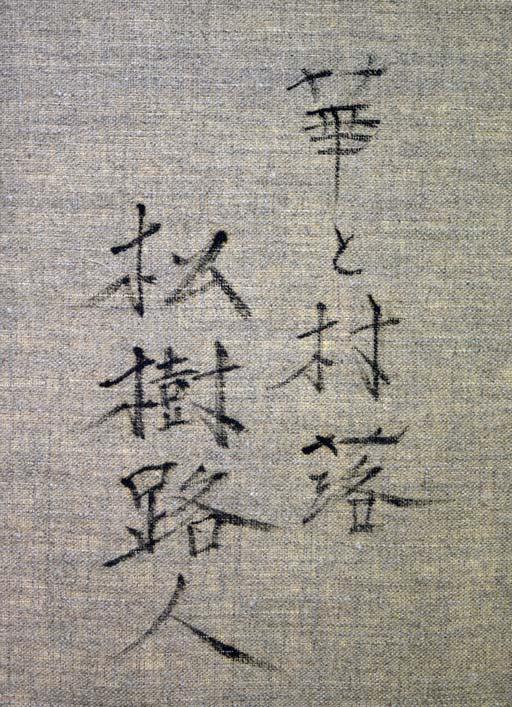 華と村落
松樹路人